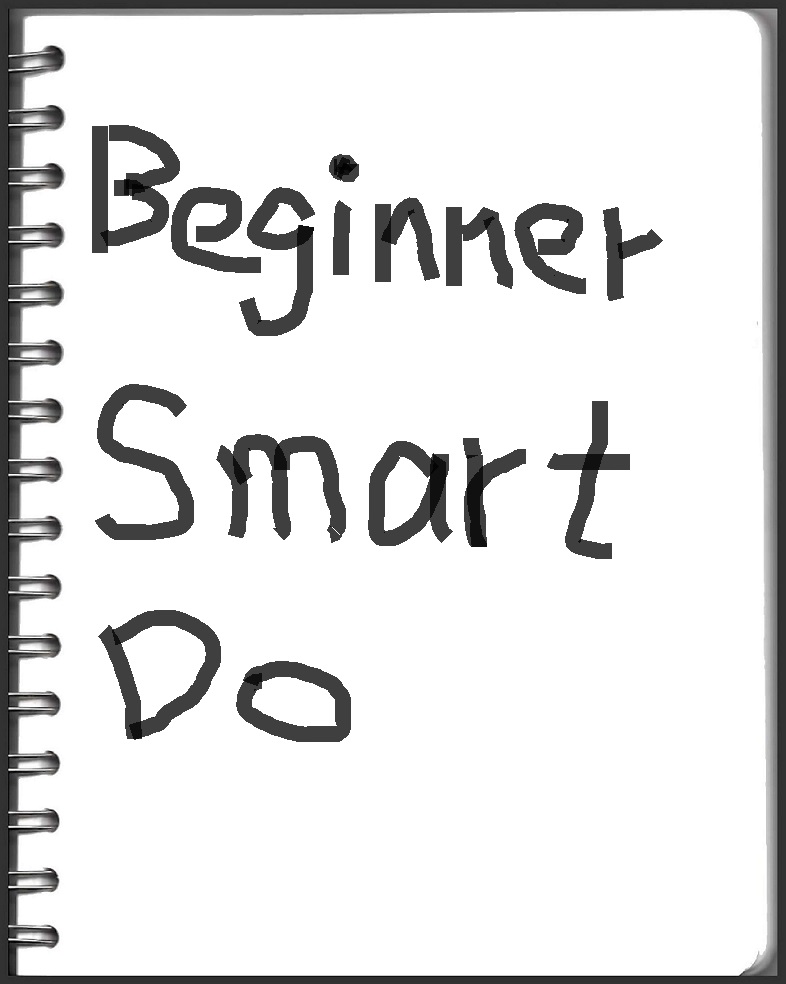 Beginner
Smart
Do